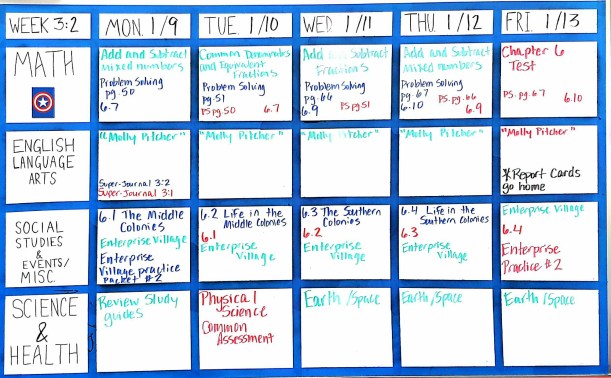 WEEK 3:2
MON. 1/9
TUE. 1/10
WED 1/11
THU. 1/12
FRI. 1/13
MATH
Add and Subtract
mixed numbers
Problem Solving
pg.50
6.7
Common Denominators
and Equivalent
Fractions
Problem Solving
pg.51
PS pg.50 6.7
Add and Subtract
Fractions
Problem Solving
pg.66
6.9 PS pg51
Add and Subtract
mixed numbers
Problem Solving
pg.67 PS.pg.66
6.10 6.9
Chapter 6
Test
PS.pg.67 6.10
ENGLISH
LANGUAGE
ARTS
"Molly Pitcher"
Super-Journal 3:2
Super-Journal 3:1
"Molly Pitcher"
"Molly Pitcher"
"Molly Pitcher"
"Molly Pitcher"
*Report Cards
go home
SOCIAL
STUDIES
&
EVENTS/
MISC.
6.1 The Middle
Colonies
Enterprise Village
Enterprise
Village practice
Packet #2
6.2 Life in the
Middle Colonies
6.1
Enterprise
Village
6.3 The Southern
Colonies
6.2
Enterprise
Village
6.4 Life in the
Southern Colonies
6.3
Enterprise
Village
Enterprise Village
6.4
Enterprise
Practice #2
SCIENCE
&
HEALTH
Review Study
guides
Physical
Science
Common
Assessment
Earth/Space
Earth/Space
Earth/Space